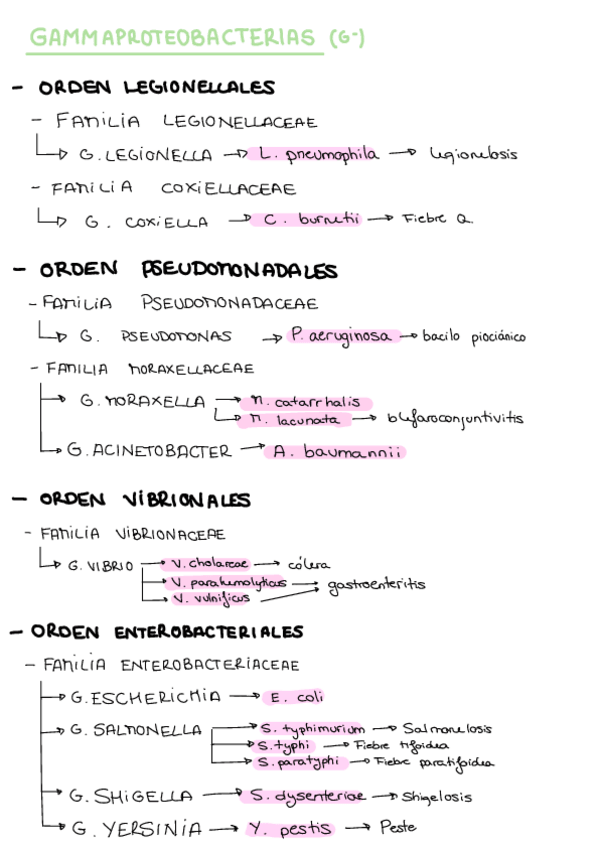 GAMMAPROTEOBACTERIAS (G-)
- ORDEN LEGIONELLALES
- FAMILIA LEGIONELLACEAE
G. LEGIONELLA → L. pneumophila → legionelosis
- FAMILIA COXIELLACEAE
G. COXIELLA → C. burnetii → Fiebre Q.
- ORDEN PSEUDOMONADALES
- FAMILIA PSEUDOMONADACEAE
G. PSEUDOMONAS → P. aeruginosa → bacilo piociánico
- FAMILIA MORAXELLACEAE
G. MORAXELLA → M. catarrhalis
M. lacunata → blefaroconjuntivitis
G. ACINETOBACTER → A. baumannii
- ORDEN VIBRIONALES
- FAMILIA VIBRIONACEAE
G. VIBRIO → V. cholareae → cólera
V. parahemolyticus → gastroenteritis
V. vulnificus
- ORDEN ENTEROBACTERIALES
- FAMILIA ENTEROBACTERIACEAE
G. ESCHERICHIA → E. coli
G. SALMONELLA → S. typhimurium → Salmonelosis
S. typhi → Fiebre tifoidea
S. paratyphi → Fiebre paratifoidea
G. SHIGELLA → S. dysenteriae → Shigelosis
G. YERSINIA → Y. pestis → Peste